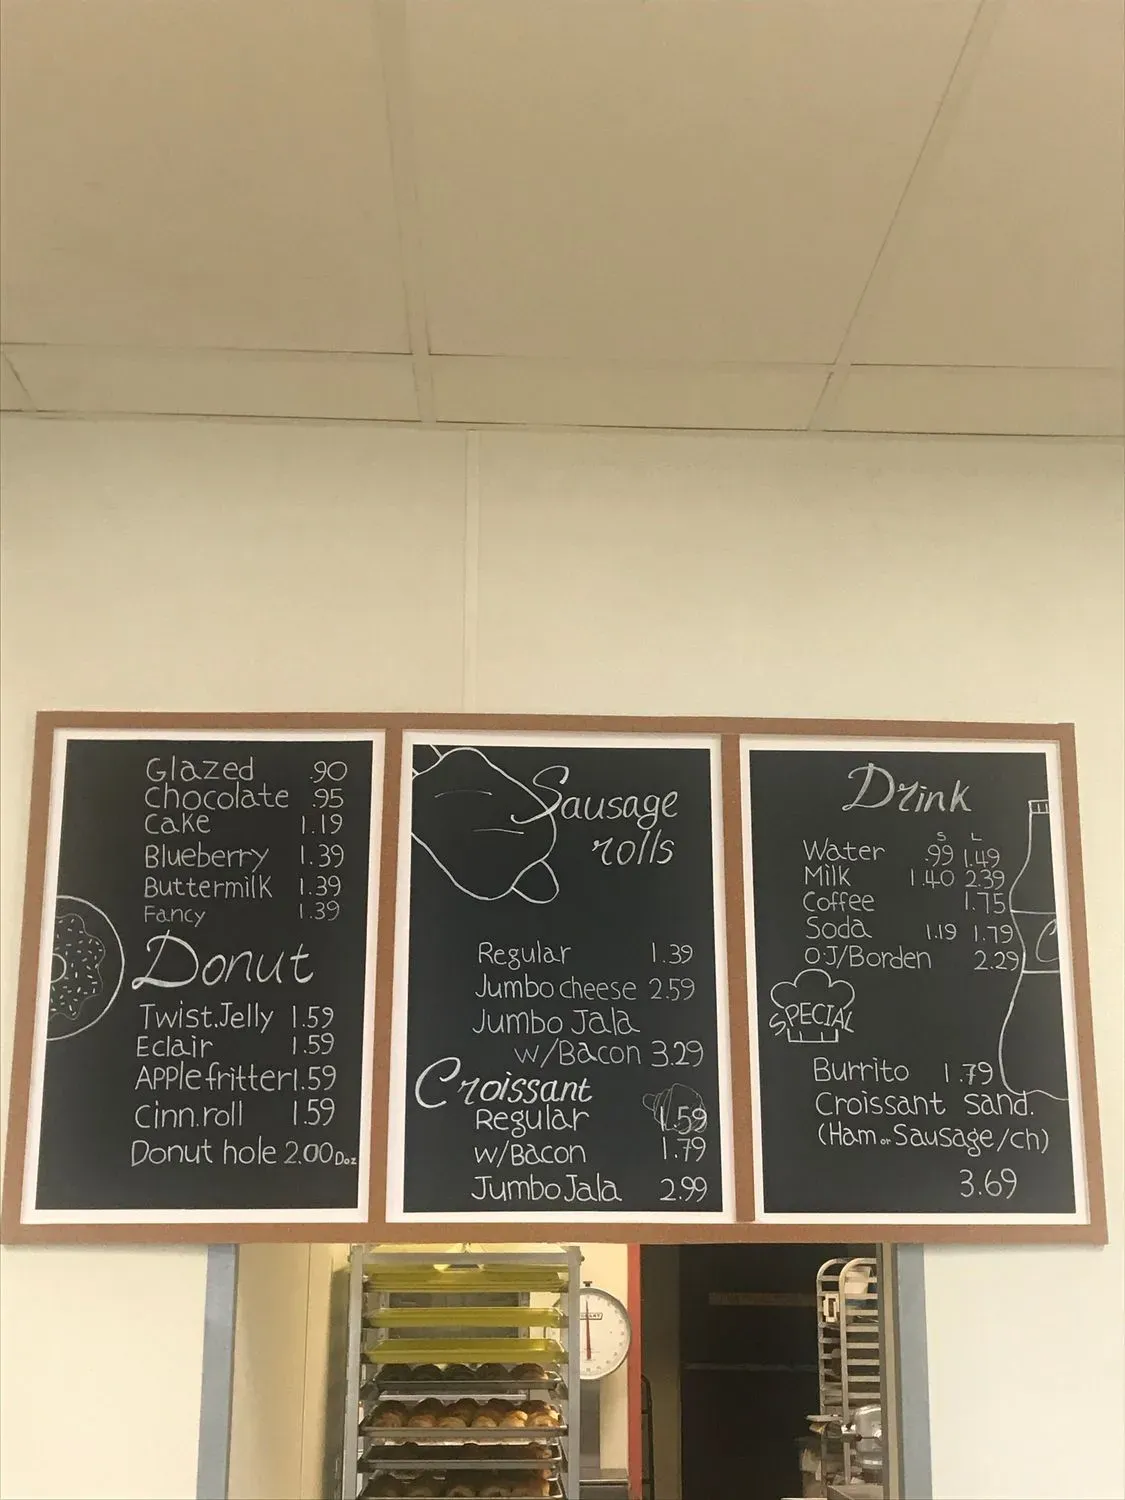 Glazed .90
Chocolate .95
Cake 1.19
Blueberry 1.39
Buttermilk 1.39
Fancy 1.39
Donut
Twist.Jelly 1.59
Eclair 1.59
APPle fritter 1.59
Cinn.roll 1.59
Donut hole 2.00 Doz
Sausage
rolls
Regular 1.39
Jumbo cheese 2.59
Jumbo Jala
w/Bacon 3.29
Croissant
Regular 1.59
w/Bacon 1.79
Jumbo Jala 2.99
Drink
S L
Water .99 1.49
Milk 1.40 2.39
Coffee 1.75
Soda 1.19 1.79
O.J/Borden 2.29
SPECIAL
Burrito 1.79
Croissant Sand.
(Ham or Sausage/ch)
3.69